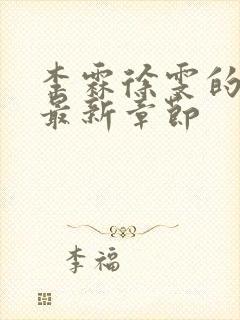 李霖徐雯的
最新章节
李福